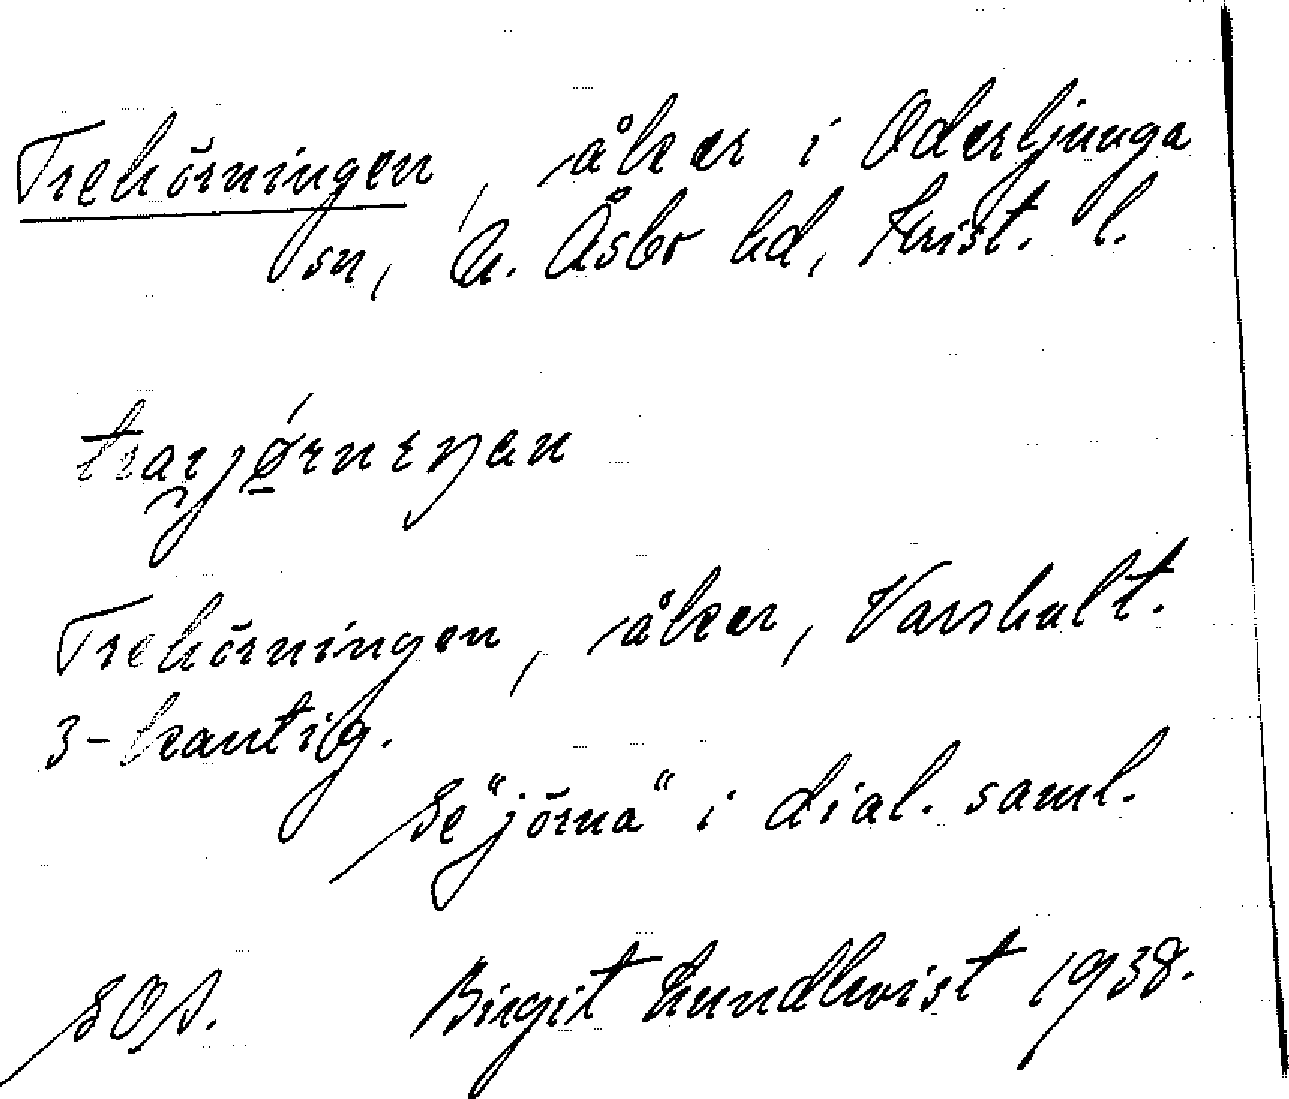 Trehörningen, åker i Oderljunga
sn, N. Åsbo hd, Krist. l.
Trehörningen, åker, Varshult.
3-kantig.
Se "jörna" i dial. saml.
SOA. Birgit Lundkvist 1938.